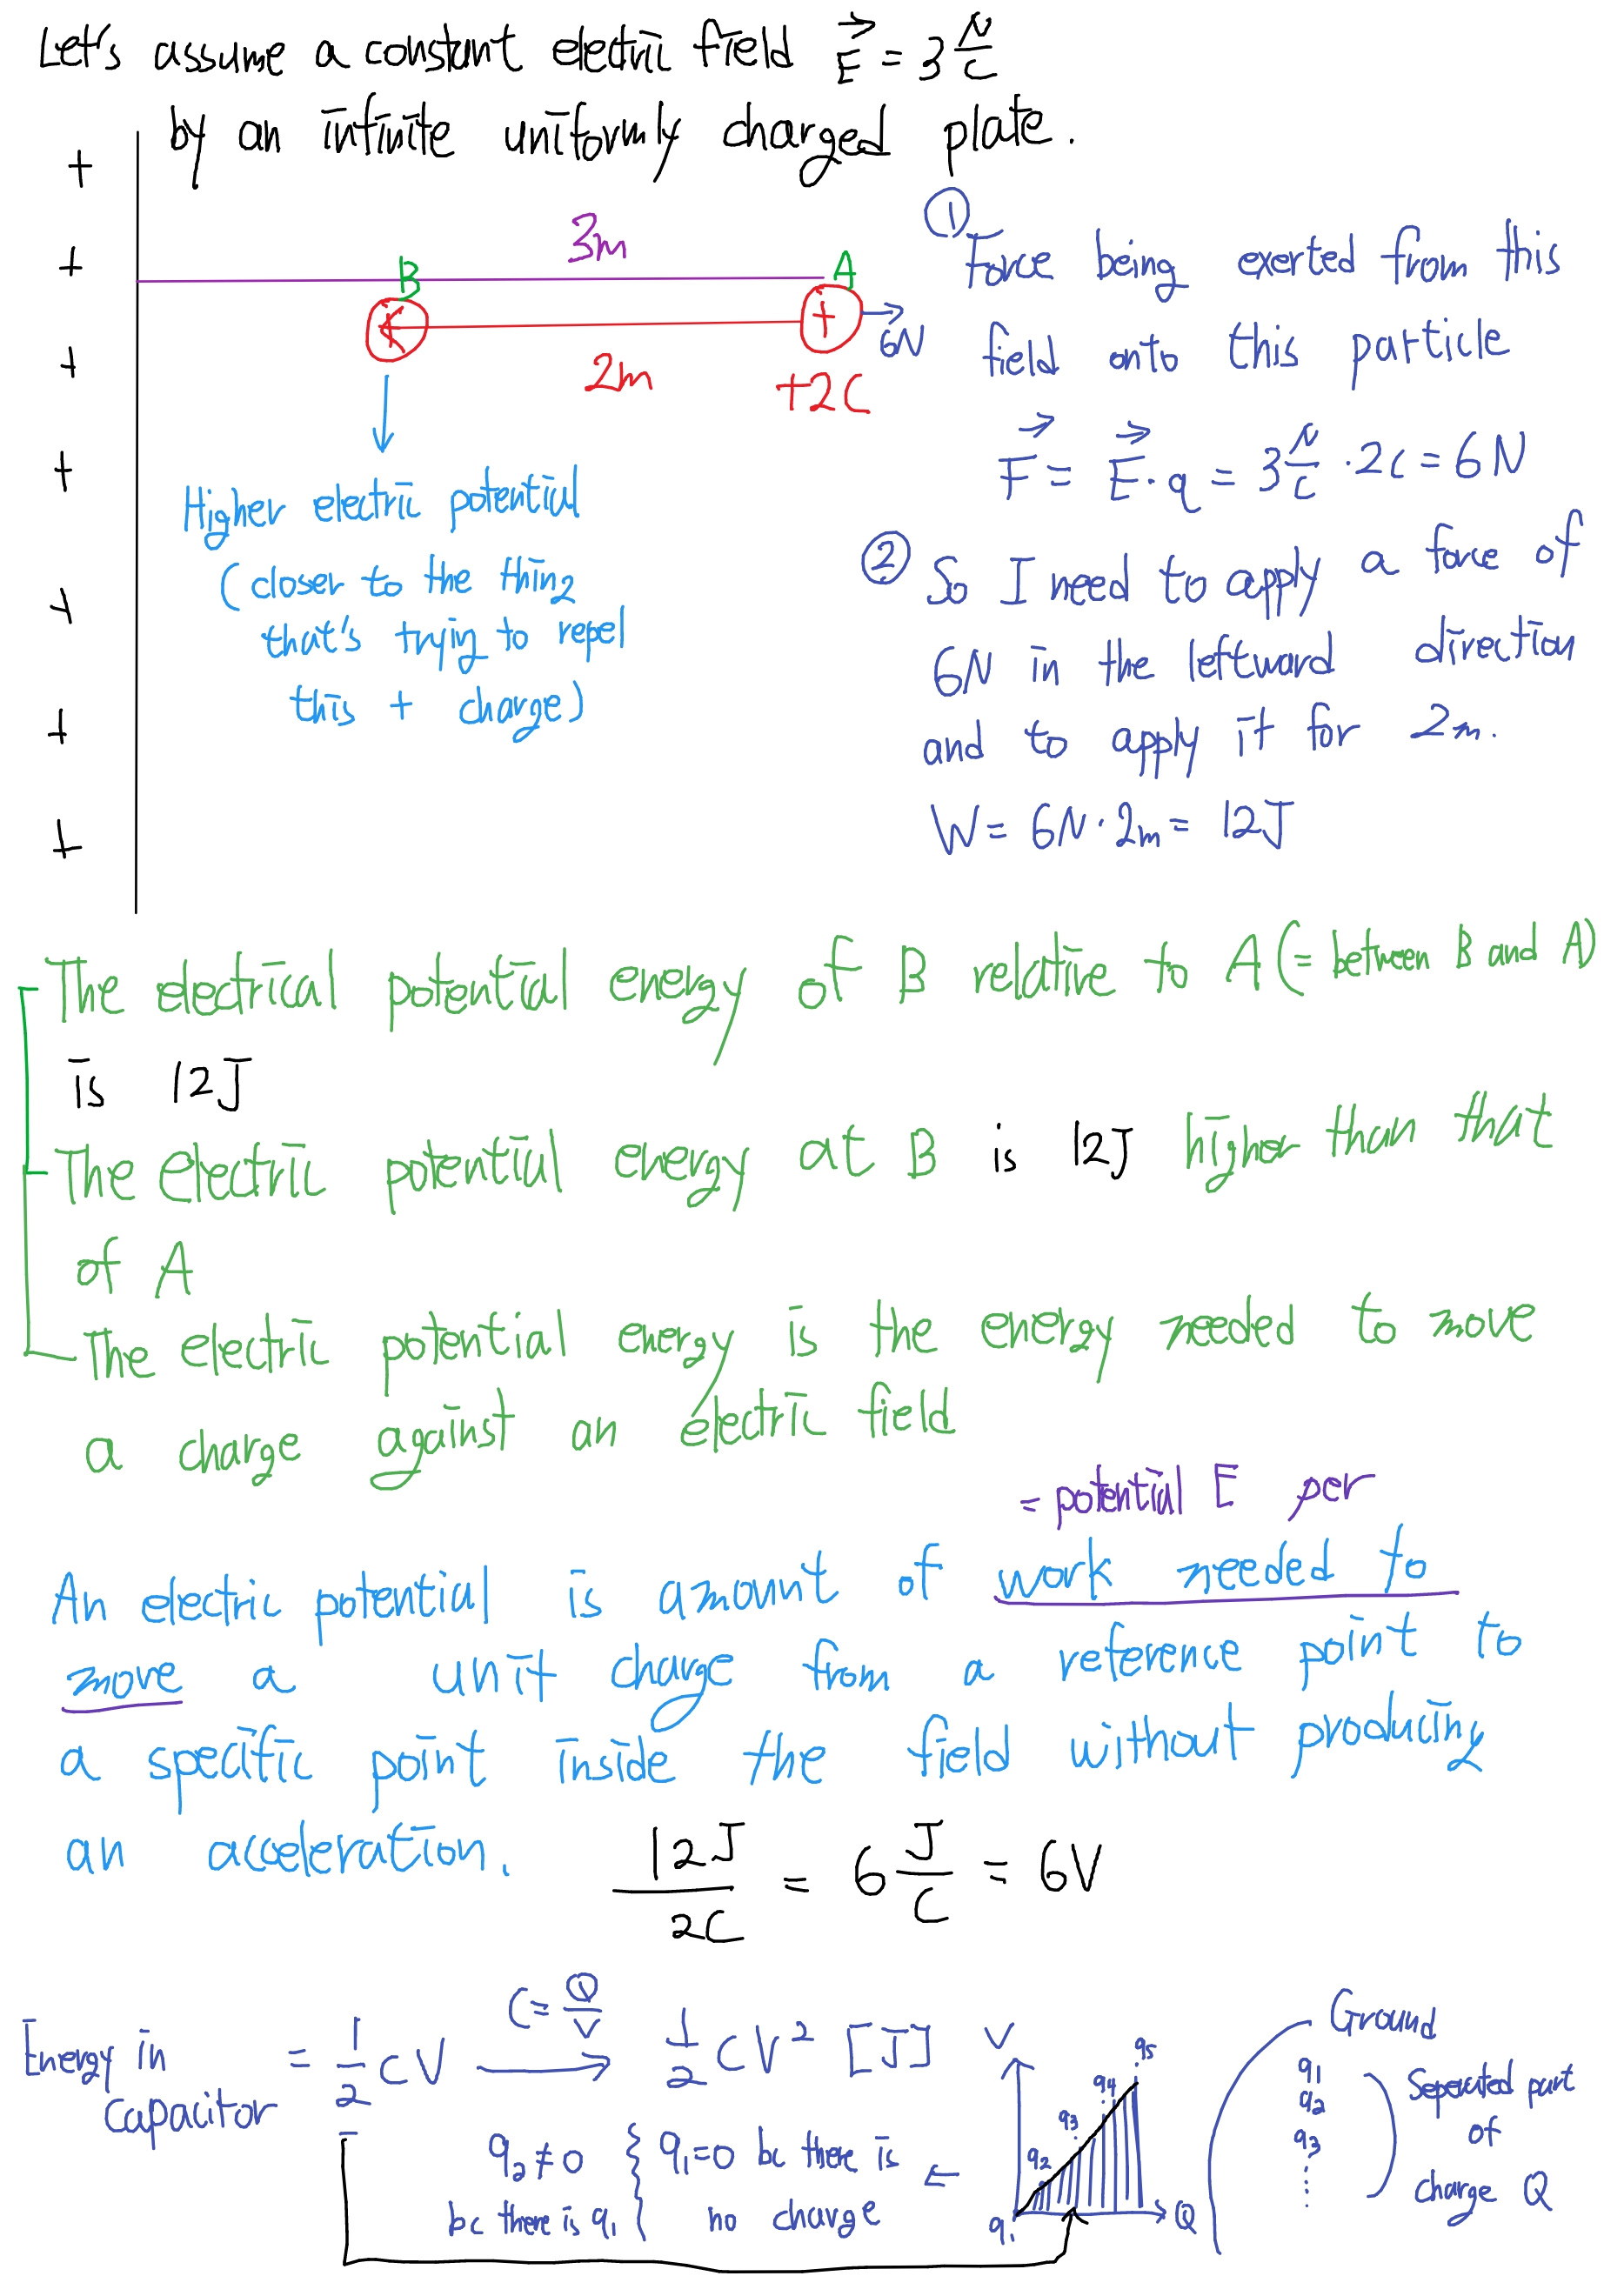 Let's assume a constant electric field E⃗ = 3 N/C
by an infinite uniformly charged plate.
+
+
+
+
+
+
+
3m
B
A
+
6N
2m
+2C
Higher electric potential
(closer to the thing
that's trying to repel
this + charge)
①
Force being exerted from this
field onto this particle
F⃗ = E⃗ · q = 3 N/C · 2C = 6N
② So I need to apply a force of
6N in the leftward direction
and to apply it for 2m.
W = 6N · 2m = 12J
The electrical potential energy of B relative to A (= between B and A)
is 12J
The electric potential energy at B is 12J higher than that
of A
The electric potential energy is the energy needed to move
a charge against an electric field
= potential E per
An electric potential is amount of work needed to
move a unit charge from a reference point to
a specific point inside the field without producing
an acceleration.
12J/2C = 6 J/C = 6V
Energy in
capacitor
= 1/2 CV
C = Q/V
1/2 CV² [J]
q₂ ≠ 0
bc there is q₁
q₁ = 0 bc there is
no charge
V
q₁
q₂
q₃
q₄
q₅
Q
Ground
q₁
q₂
q₃
⋮
Seperated part
of
charge Q